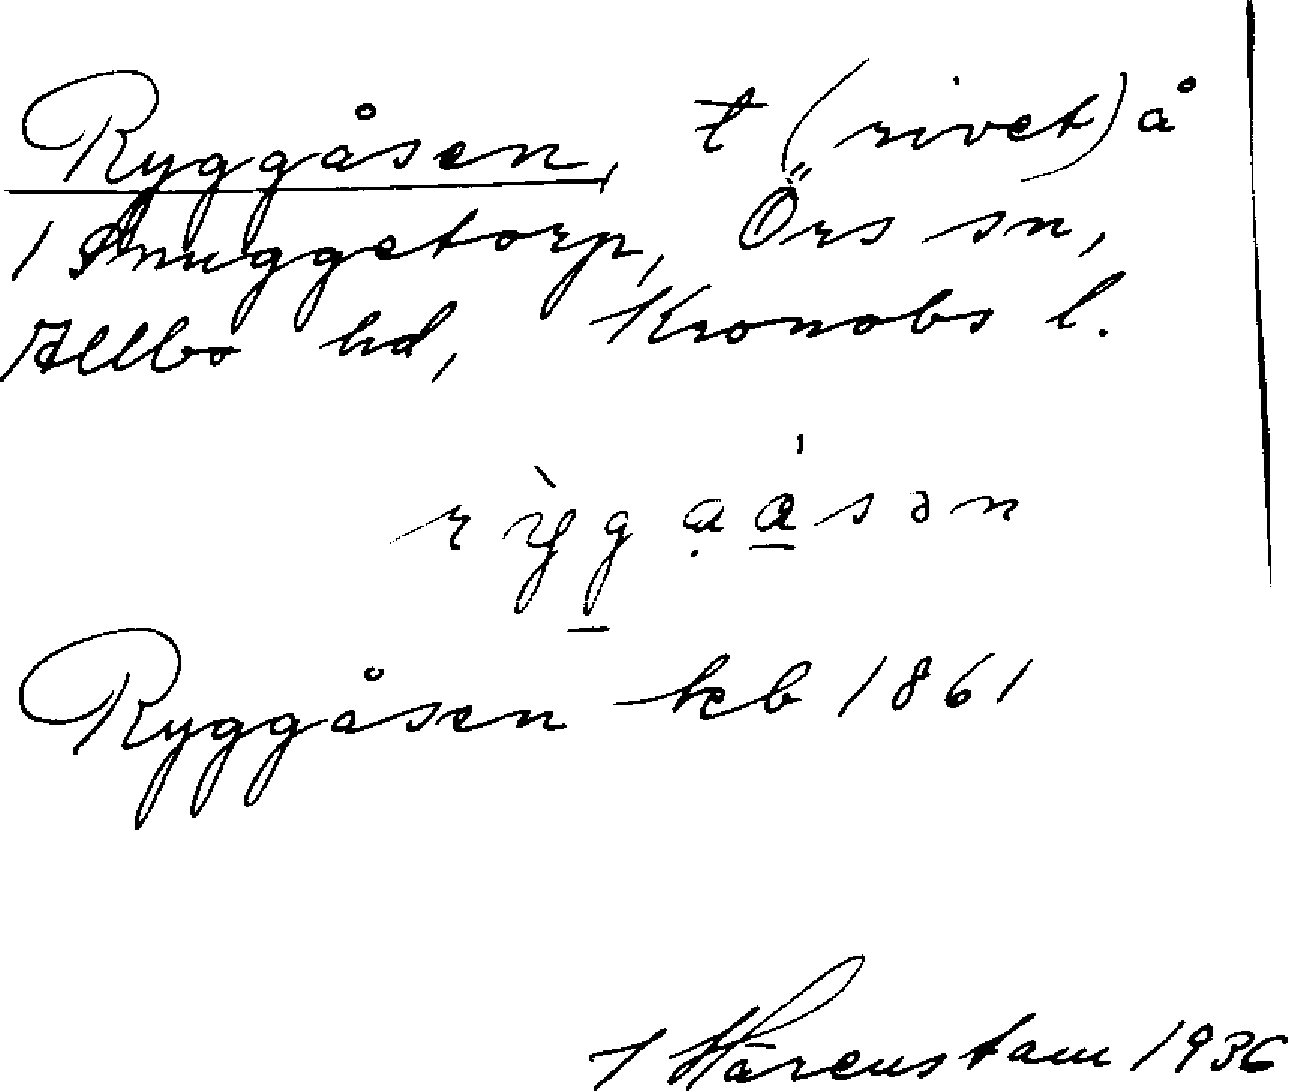 Ryggåsen, t (rivet) å
1 Snuggetorp, Örs sn,
Allbo hd, Kronobs l.
rỳg ạásən
Ryggåsen kb 1861
Härenstam 1936